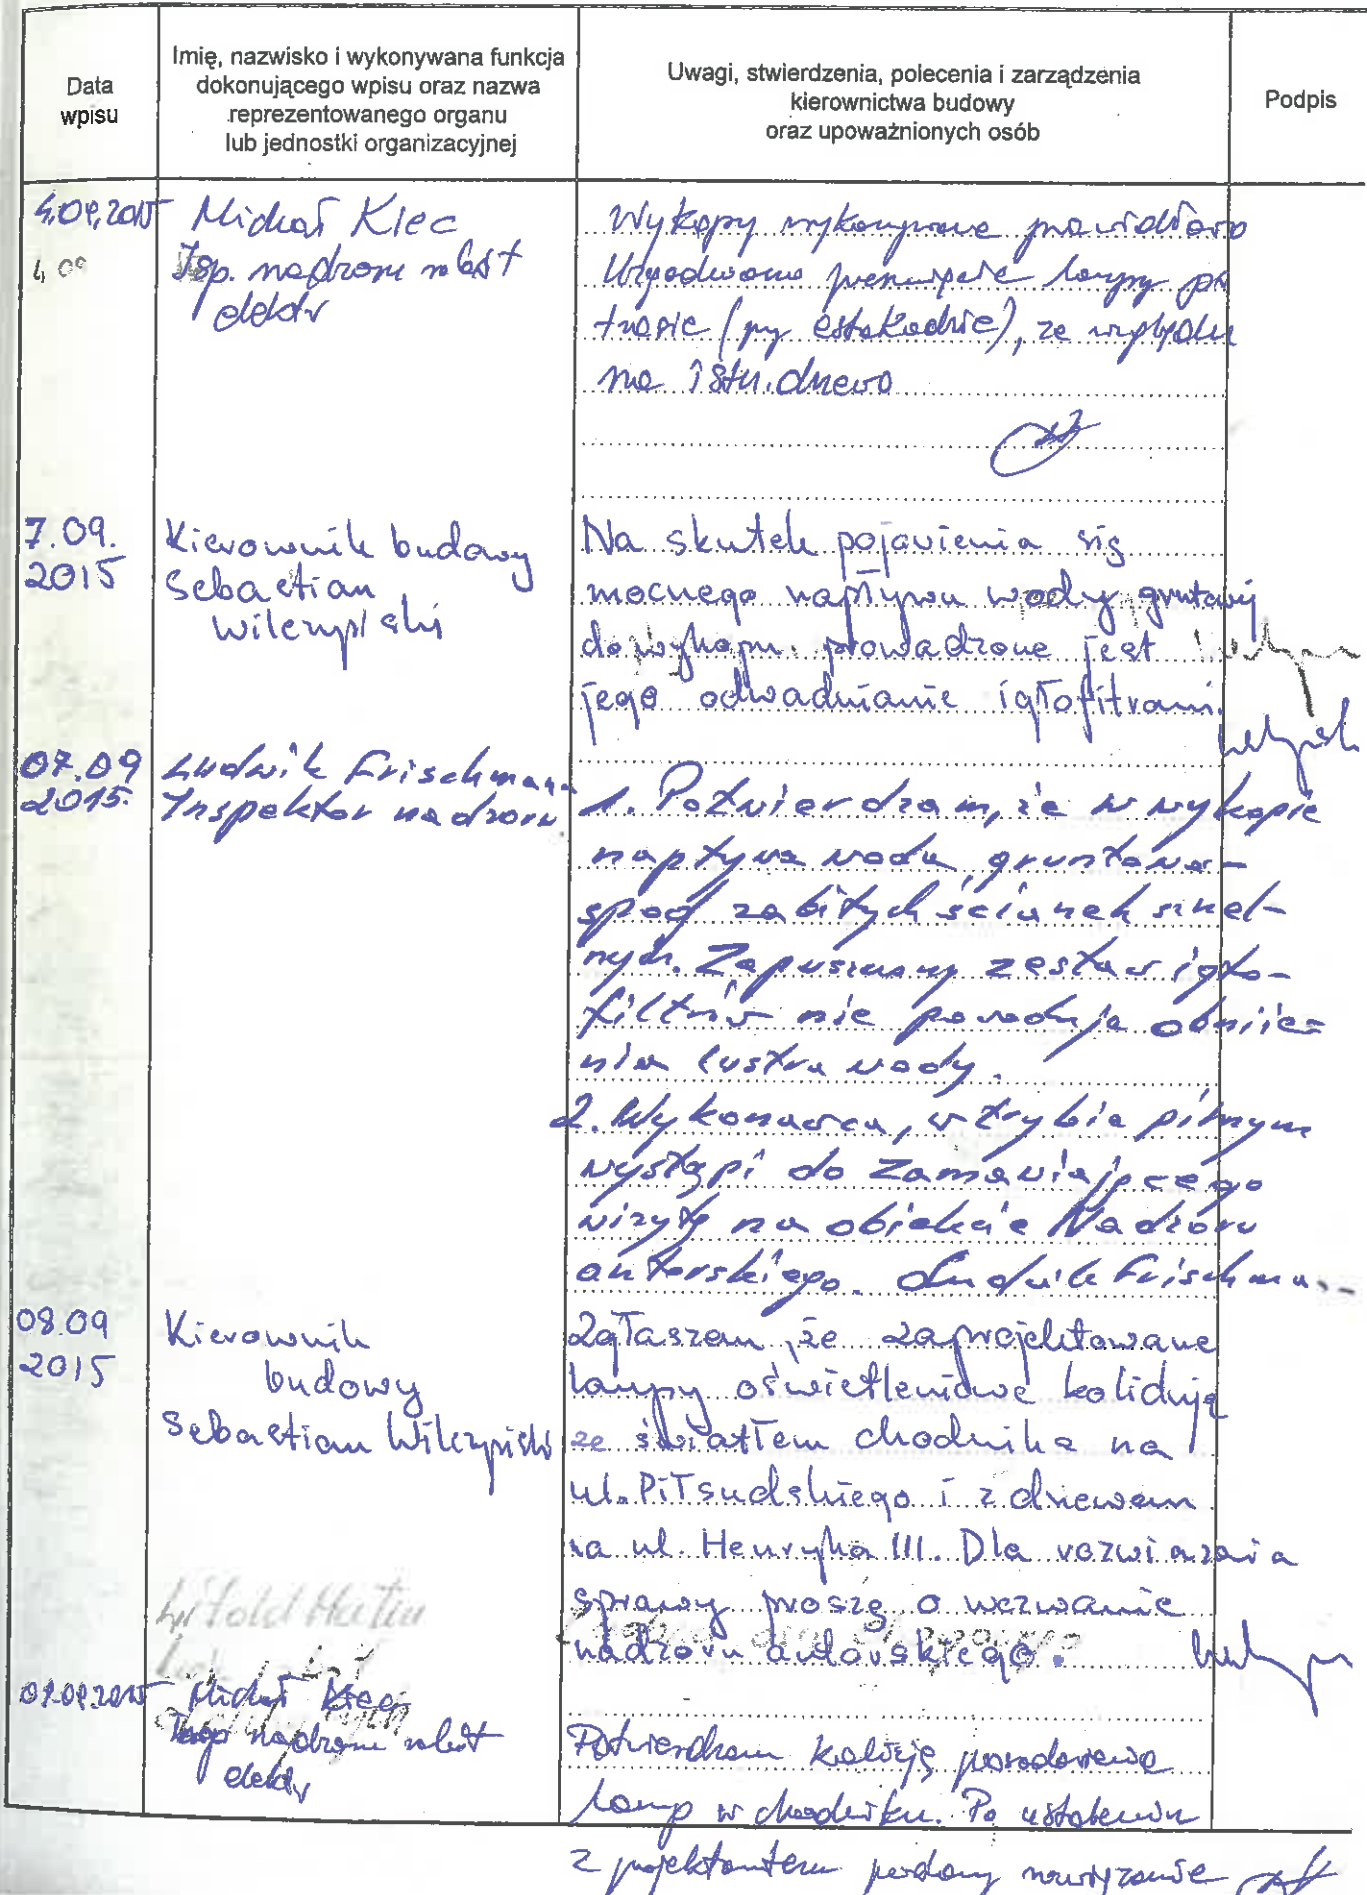 Data
wpisu
Imię, nazwisko i wykonywana funkcja
dokonującego wpisu oraz nazwa
reprezentowanego organu
lub jednostki organizacyjnej
Uwagi, stwierdzenia, polecenia i zarządzenia
kierownictwa budowy
oraz upoważnionych osób
Podpis
4.09.2015
Michał Klec
Isp. nadzoru robót
elektr
Wykopy wykonywane prawidłowo
Uzgodniono przesunięcie lampy
trasie (py estakadzie), ze względu
na istn. drzewo
7.09.
2015
Kierownik budowy
Sebastian
Wilczyński
Na skutek pojawienia się
mocnego napływu wody gruntowej
do wykopu. prowadzone jest
jego odwadnianie igłofitrami.
07.09
2015.
Ludwik Frischmann
Inspektor nadzoru
1. Potwierdzam, że w wykopie
napływa woda gruntowa -
spod zabitych ścianek szczel-
nych. Zapuszczony zestaw igło-
filtrów nie powoduje obniże-
nia lustra wody.
2. Wykonawca, w trybie pilnym
wystąpi do Zamawiającego
wizytę na obiekcie Nadzoru
autorskiego. Ludwik Frischman
08.09
2015
Kierownik
budowy
Sebastian Wilczyński
Zgłaszam, że zaprojektowane
lampy oświetleniowe kolidują
ze światłem chodnika na
ul. Piłsudskiego i z drzewem
na ul. Henryka III. Dla rozwiązania
sprawy proszę o wezwanie
nadzoru autorskiego.
Witold
09.09.2015
Michał Klec
Insp nadzoru robót
elektr
Potwierdzam kolizję posadowienia
lamp w chodniku. Po ustaleniu
z projektantem podamy rozwiązanie